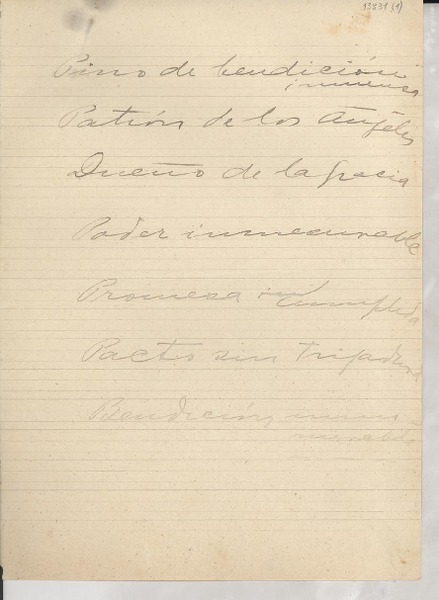 13831 (1)
Pino de bendición
inmensa
Patrón de los Ángeles
Dueño de la gracia
Poder inmensurable
Promesa
cumplida
Pacto sin
Bendición innu-
merable